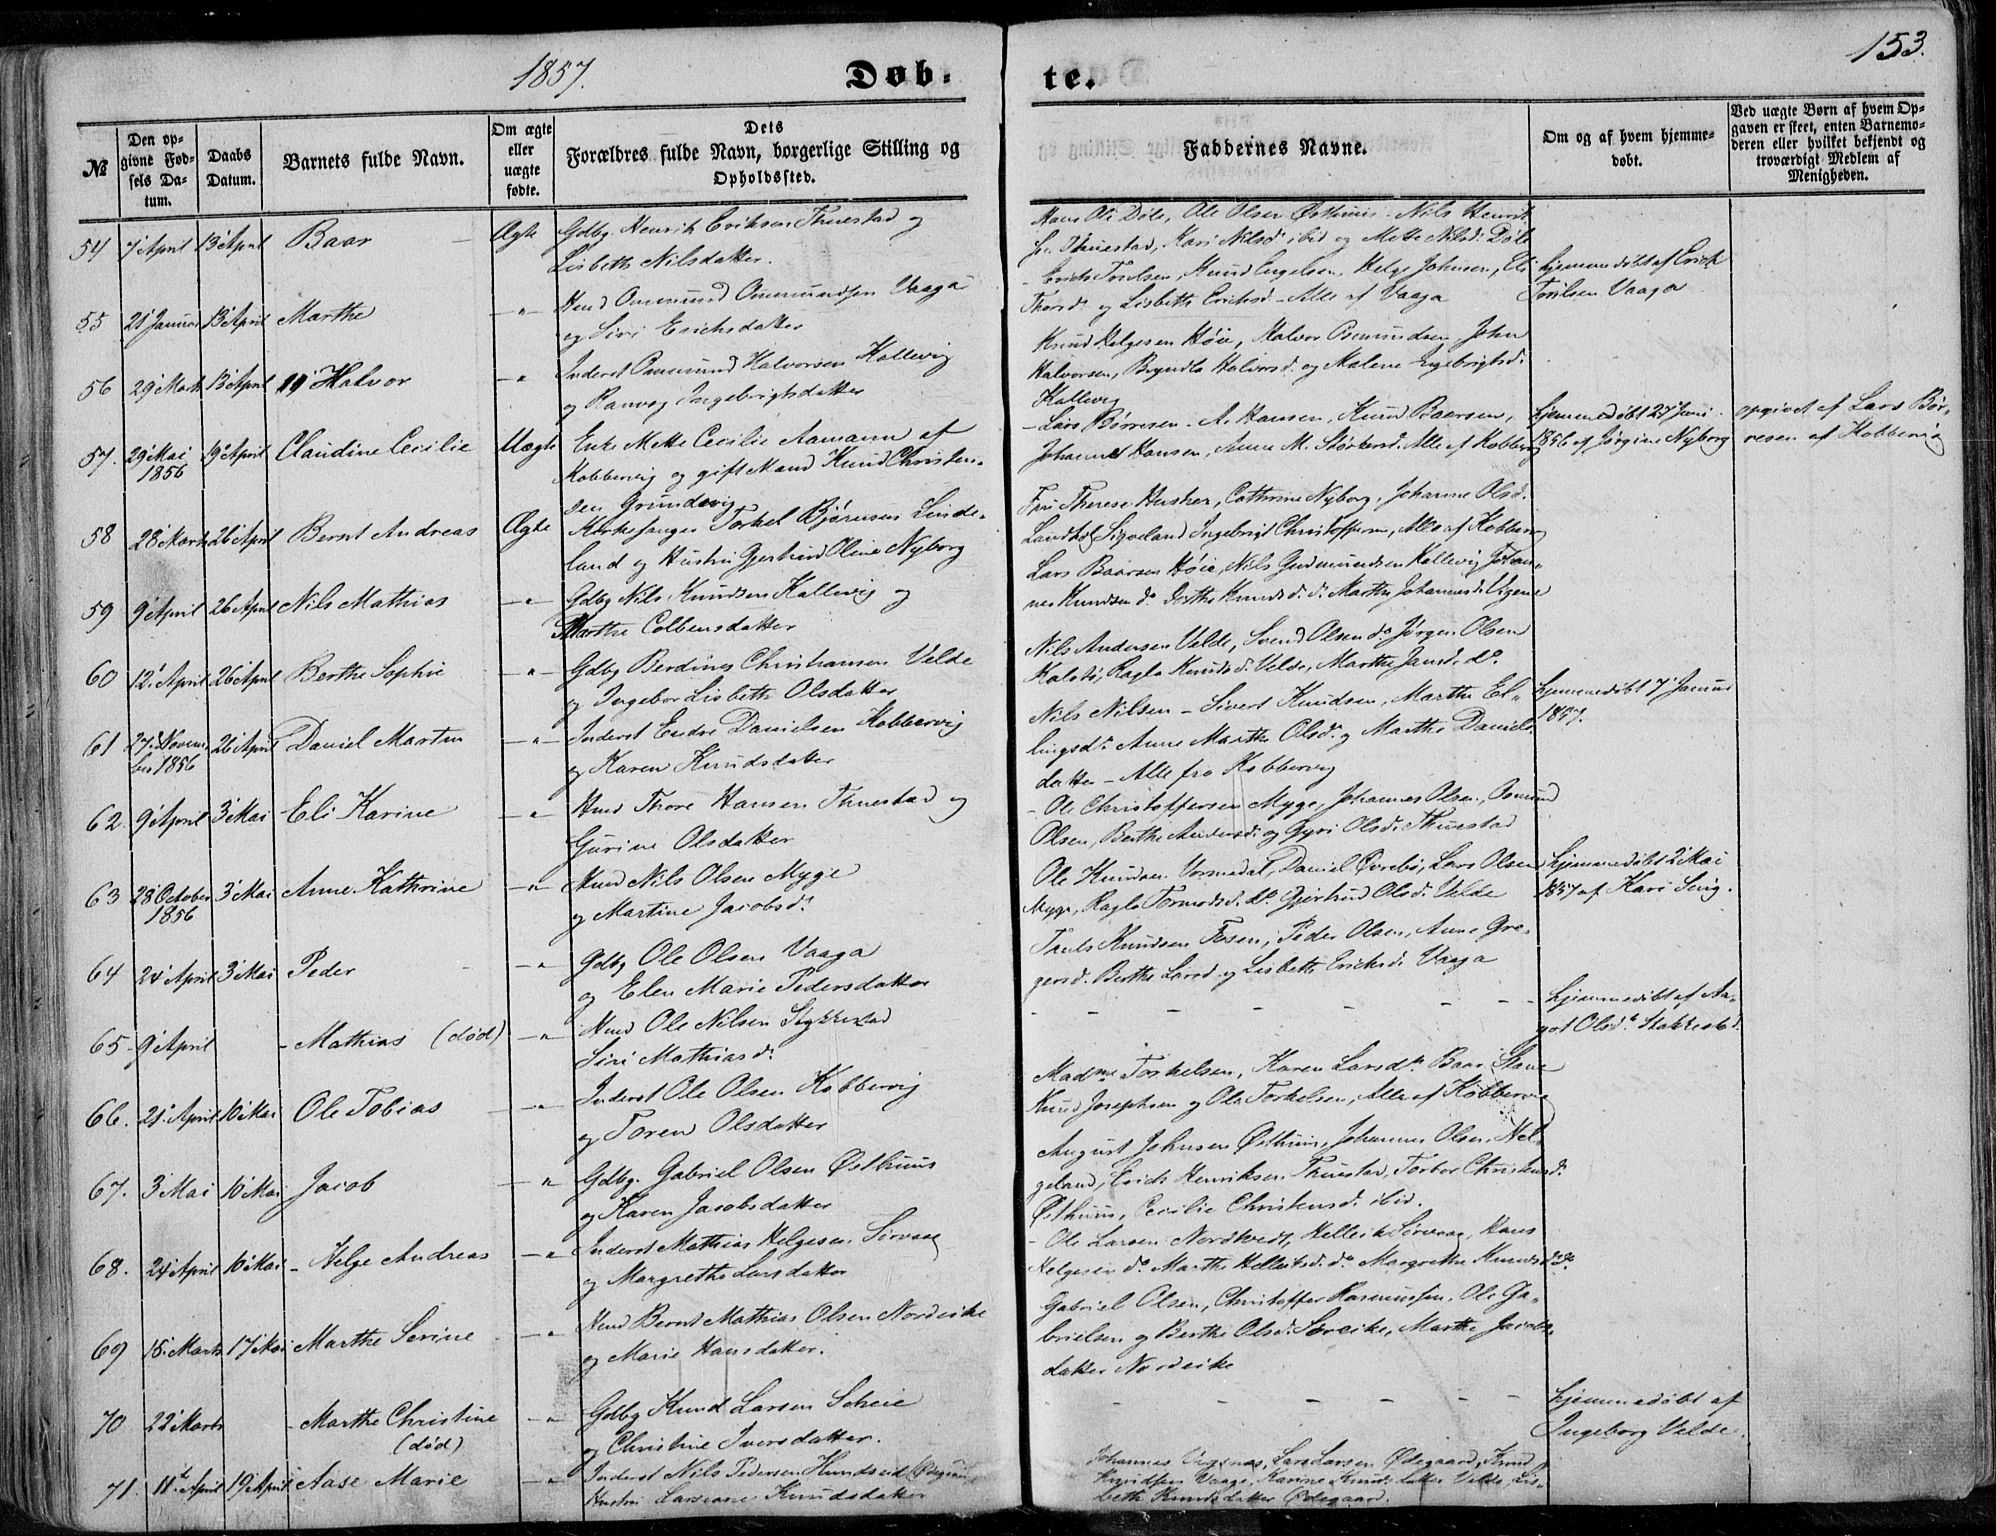 1857.
Døb-
te.
153.
№
Den op-
givne Fød-
sels Da-
tum.
Daabs
Datum.
Barnets fulde Navn.
Om ægte
eller
uægte
fødte.
Dets
Forældres fulde Navn, borgerlige Stilling og
Opholdssted.
Faddernes Navne.
Om og af hvem hjemme-
døbt.
Ved uægte Børn af hvem Op-
gaven er skeet, enten Barnemo-
deren eller hvilket bekjendt og
troværdigt Medlem af
Menigheden.
54 7 April 13 April Baar Ægte Gdbg Henrik Eriksen Thuestad og
Lisbeth Nilsdatter.
Hans Ols Døle, Ole Olsen Østhuus - Nils Henrik
Thuestad, Kari Nilsd. ibid og Mette Nilsd. Døle
55 21 Januar 13 April Marthe -"- Hmd Ommund Ommundsen Vaaga
og Siri Erichsdatter
- Erich Troilsen, Knud Engelsen, Helge Johnsen, Eli
Thorsd. og Lisbeth Erichsd - Alle af Vaaga
hjemmedøbt af Erich
Troilsen Vaaga
56 29 Marts 13 April Halvor -"- Inderst Ommund Halvorsen Kallevig
og Ranvog Ingebrigtsdatter
Knud Helgesen Høie, Halvor Osmundsen, John
Halvorsen, Bryndla Halvorsd. og Malene Ingebrigtsd.
Kallevig
57. 29 Mai
1856 19 April Claudine Cecilie Uægte Enke Mette Cecilie Aamann af
Kobbervig og gift Mand Knud Christen-
sen Grundevig
- Lars Børresen - A. Hansen, Knud Baarsen,
Johannes Hansen, Anne M. Størkersd. Alle af Kobberv
hjemmedøbt 27 Juni
1856 af Jørgine Nyborg
opgivet af Lars Bør-
resen af Kobbervig
58 28 Marts 26 April Bernt Andreas Ægte Kirkesanger Torkel Bjørnsen Linde-
land og Hustru Gjertrud Oline Nyborg
Fru Therese Husher, Cathrine Nyborg, Johanne Olsd.
Sigveland Ingebrigt Christoffersen, Alle af Kobberv
59 9 April 26 April Nils Mathias -"- Gdbg Nils Knudsen Kallevig og
Marthe Colbensdatter
Lars Baarsen Høie, Nils Gudmundsen Kallevig Johan-
nes Knudsen do. Berthe Knudsd. do. Marthe Johannesd.
60 12 April 26 April Berthe Sophie -"- Gdbg Berdines Christiansen Velde
og Ingebor Lisbeth Olsdatter
Nils Andersen Velde, Svend Olsen do. Jørgen Olsen
Kalstø, Ragla Knudsd. Velde, Marthe Jansd. do.
61 27 Novem
ber 1856 26 April Daniel Martin -"- Inderst Endre Danielsen Kobbervig
og Karen Knudsdatter
Nils Nilsen - Sivert Knudsen, Marthe El-
lingsdr. Anne Marthe Olsd. og Marthe Daniels
datter - Alle fra Kobbervig
hjemmedøbt 7 Januar
1857.
62 9 April 3 Mai Eli Karine -"- Hmd Thore Hansen Thuestad og
Gurine Olsdatter
- Ole Christoffersen Myge, Johannes Olsen, Osmund
Olsen, Berthe Andersd. og Gyri Olsd. Thuestad
63 28 October
1856 3 Mai Anne Kathrine -"- Hmd Nils Olsen Myge
og Martine Jacobsd.
Ole Knudsen Vormedal, Daniel Øvrebø, Lars Olsen
Myge, Ragla Tormodsd. do. Gjertrud Olsd. Velde
hjemmedøbt 2 Mai
1857 af Kari Snig.
64 24 April 3 Mai Peder -"- Gdbg Ole Olsen Vaaga
og Elen Marie Pedersdatter
Truls Knudsen Fosen, Peder Olsen, Anne Gre-
gersd. Berthe Larsd. og Lisbeth Erichsd. Vaaga
65 9 April - Mathias (død) -"- Hmd Ole Nilsen Stakkestad
Siri Mathiasd.
- - - - - -
hjemmedøbt af Aa-
got Olsdr. Stakkestad.
66. 21 April 10 Mai Ole Tobias -"- Inderst Ole Olsen Kobbervig
og Toren Olsdatter
Madme Torkelsen, Karen Larsdr. Baar Stave
Knud Josephsen og Ole Torkelsen, Alle af Kobbervig
67. 3 Mai 10 Mai Jacob -"- Gdbg. Gabriel Olsen Østhuus
og Karen Jacobsdatter
August Johnsen Østhuus, Johannes Olsen Hel-
geland, Erich Henriksen Thuestad, Torbor Christensd.
Østhuus, Cecilie Christensd. ibid.
68. 24 April 10 Mai - Helge Andreas -"- Inderst Mathias Helgesen Sørvaag
og Margrethe Larsdatter
- Ole Larsen Nordtvedt, Hellik Sørvaag, Hans
Helgesen do. Marthe Helliksd. do. Margrethe Knudsd. do.
69 15 Marts 17 Mai Marthe Serine -"- Hmd Bernt Mathias Olsen Nordeike
og Marie Hansdatter.
Gabriel Olsen, Christoffer Rasmussen, Ole Ga-
brielsen og Berthe Olsd. Søreike, Marthe Jacobs-
datter Nordeike
70 22 Marts - Marthe Christine
(død) -"- Gdbg Knud Larsen Scheie
og Christine Iversdatter.
- - - - - -
hjemmedøbt af
Ingeborg Velde.
71. 11te April 19 April Aase Marie -"- Inderst Nils Pedersen Hundseid
Hustru Larsiane Knudsdatter
Johannes Vignes, Lars Larsen Ødegaard, Knud
Knudsen Vaage, Karine Knudsdatter Velde, Lis-
beth Knudsdatter Ødegaard.